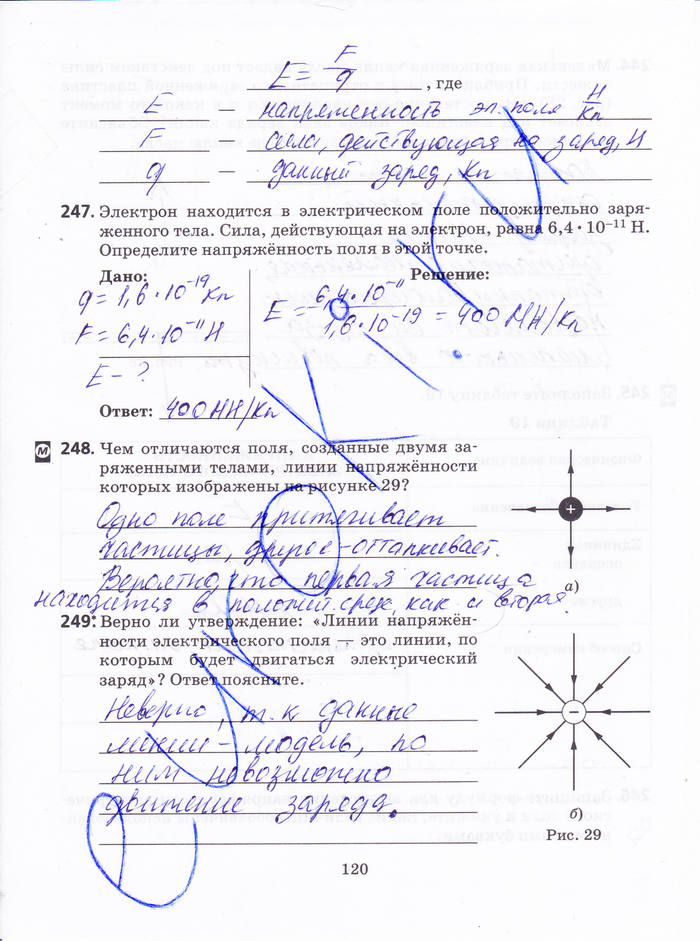 E = F/q , где
E напряженность эл. поля Н/Кл
F сила, действующая на заряд, Н
q — данный заряд, Кл
247. Электрон находится в электрическом поле положительно заря-
женного тела. Сила, действующая на электрон, равна 6,4 • 10⁻¹¹ Н.
Определите напряжённость поля в этой точке.
Дано: Решение:
q = 1,6 • 10⁻¹⁹ Кл
F = 6,4 • 10⁻¹¹ Н
E – ?
E = 6,4 • 10⁻¹¹ / 1,6 • 10⁻¹⁹ = 400 МН/Кл
Ответ: 400 МН/Кл
М 248. Чем отличаются поля, созданные двумя за-
ряженными телами, линии напряжённости
которых изображены на рисунке 29?
Одно поле притягивает
частицы, другое – отталкивает.
Вероятно, что первая частица
находится в положит. сфере, как и вторая.
+
а)
249. Верно ли утверждение: «Линии напряжён-
ности электрического поля — это линии, по
которым будет двигаться электрический
заряд»? Ответ поясните.
Неверно, т.к. данные
линии – модель, по
ним невозможно
движение заряда.
–
б)
Рис. 29
120